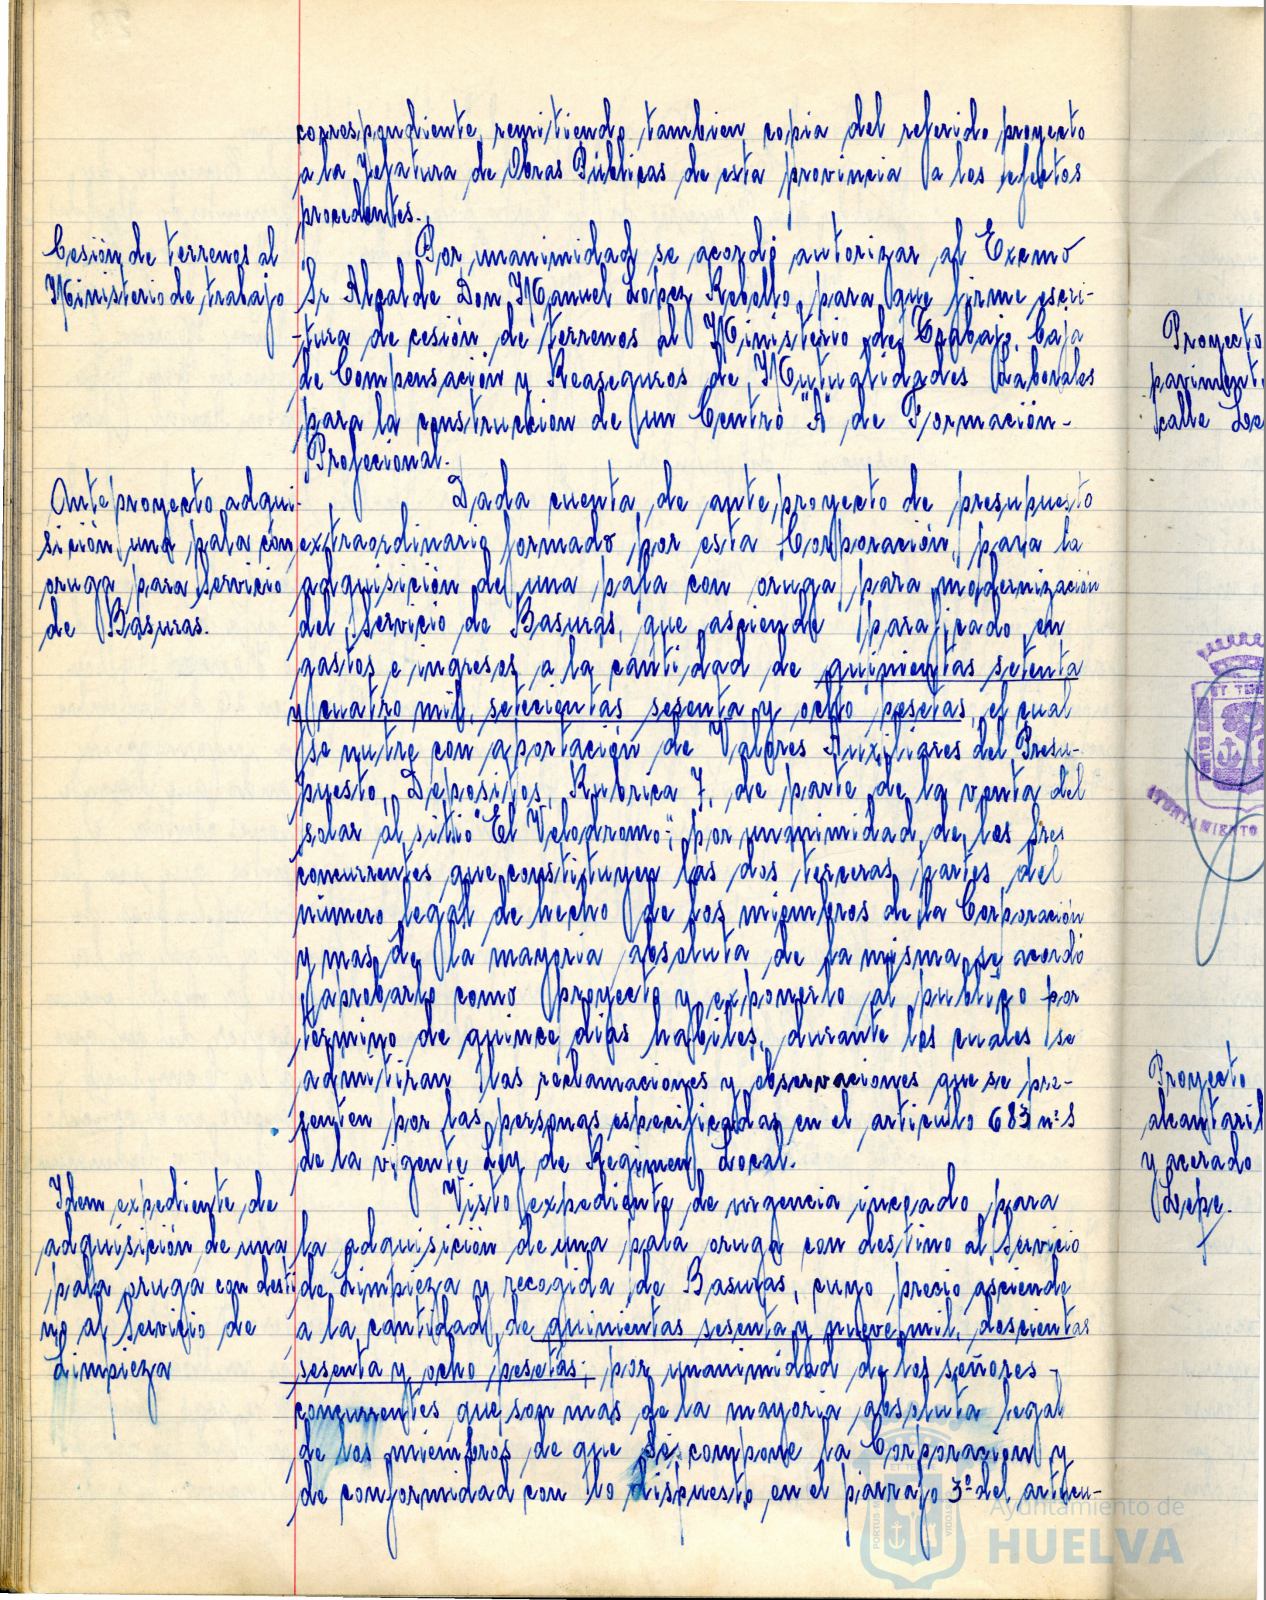 correspondiente, remitiendo tambien copia del referido proyecto
a la Jefatura de Obras Públicas de esta provincia a los efectos
procedentes.
Cesión de terrenos al
Ministerio de trabajo
Por unanimidad se acordó autorizar al Excmo
Sr Alcalde Don Manuel López Rebollo, para que firme escri-
tura de cesión de terrenos al Ministerio de Trabajo, Caja
de Compensación y Reaseguros de Mutualidades Laborales
para la construcción de un Centro "A" de Formación-
Profecional.
Anteproyecto adqui-
sición una pala con
oruga para Servicio
de Basuras.
Dada cuenta de anteproyecto de presupuesto
extraordinario formado por esta Corporación, para la
adquisición de una pala con oruga para modernización
del Servicio de Basuras, que asciende parificado en
gastos e ingresos a la cantidad de quinientas setenta
y cuatro mil, setecientas sesenta y ocho pesetas, el cual
se nutre con aportación de Valores Auxiliares del Presu-
puesto, Depositos, Rubrica 7, de parte de la venta del
solar al sitio "El Velodromo"; por unanimidad de los Sres
concurrentes que constituyen las dos terceras partes del
número legal de hecho de los miembros de la Corporación
y mas de la mayoria absoluta de la misma se acordó
aprobarlo como proyecto y exponerlo al publico por
termino de quince dias habiles, durante los cuales se
admitiran las reclamaciones y observaciones que se pre-
senten por las personas especificadas en el articulo 683 nº 8
de la vigente Ley de Regimen Local.
Idem expediente de
adquisición de una
pala oruga con desti
no al Servicio de
Limpieza
Visto expediente de urgencia incoado para
la adquisición de una pala oruga con destino al Servicio
de Limpieza y recogida de Basuras, cuyo precio asciende
a la cantidad de quinientas sesenta y nueve mil, doscientas
sesenta y ocho pesetas; por unanimidad de los señores-
concurrentes que son mas de la mayoria absoluta legal
de los miembros de que se compone la Corporación y
de conformidad con lo dispuesto en el parrafo 3º del articu-
Proyecto
paviment.
calle
AYUNTAMIENTO
Proyecto
alcantaril
y acerado
Lepe.
Ayuntamiento de
HUELVA